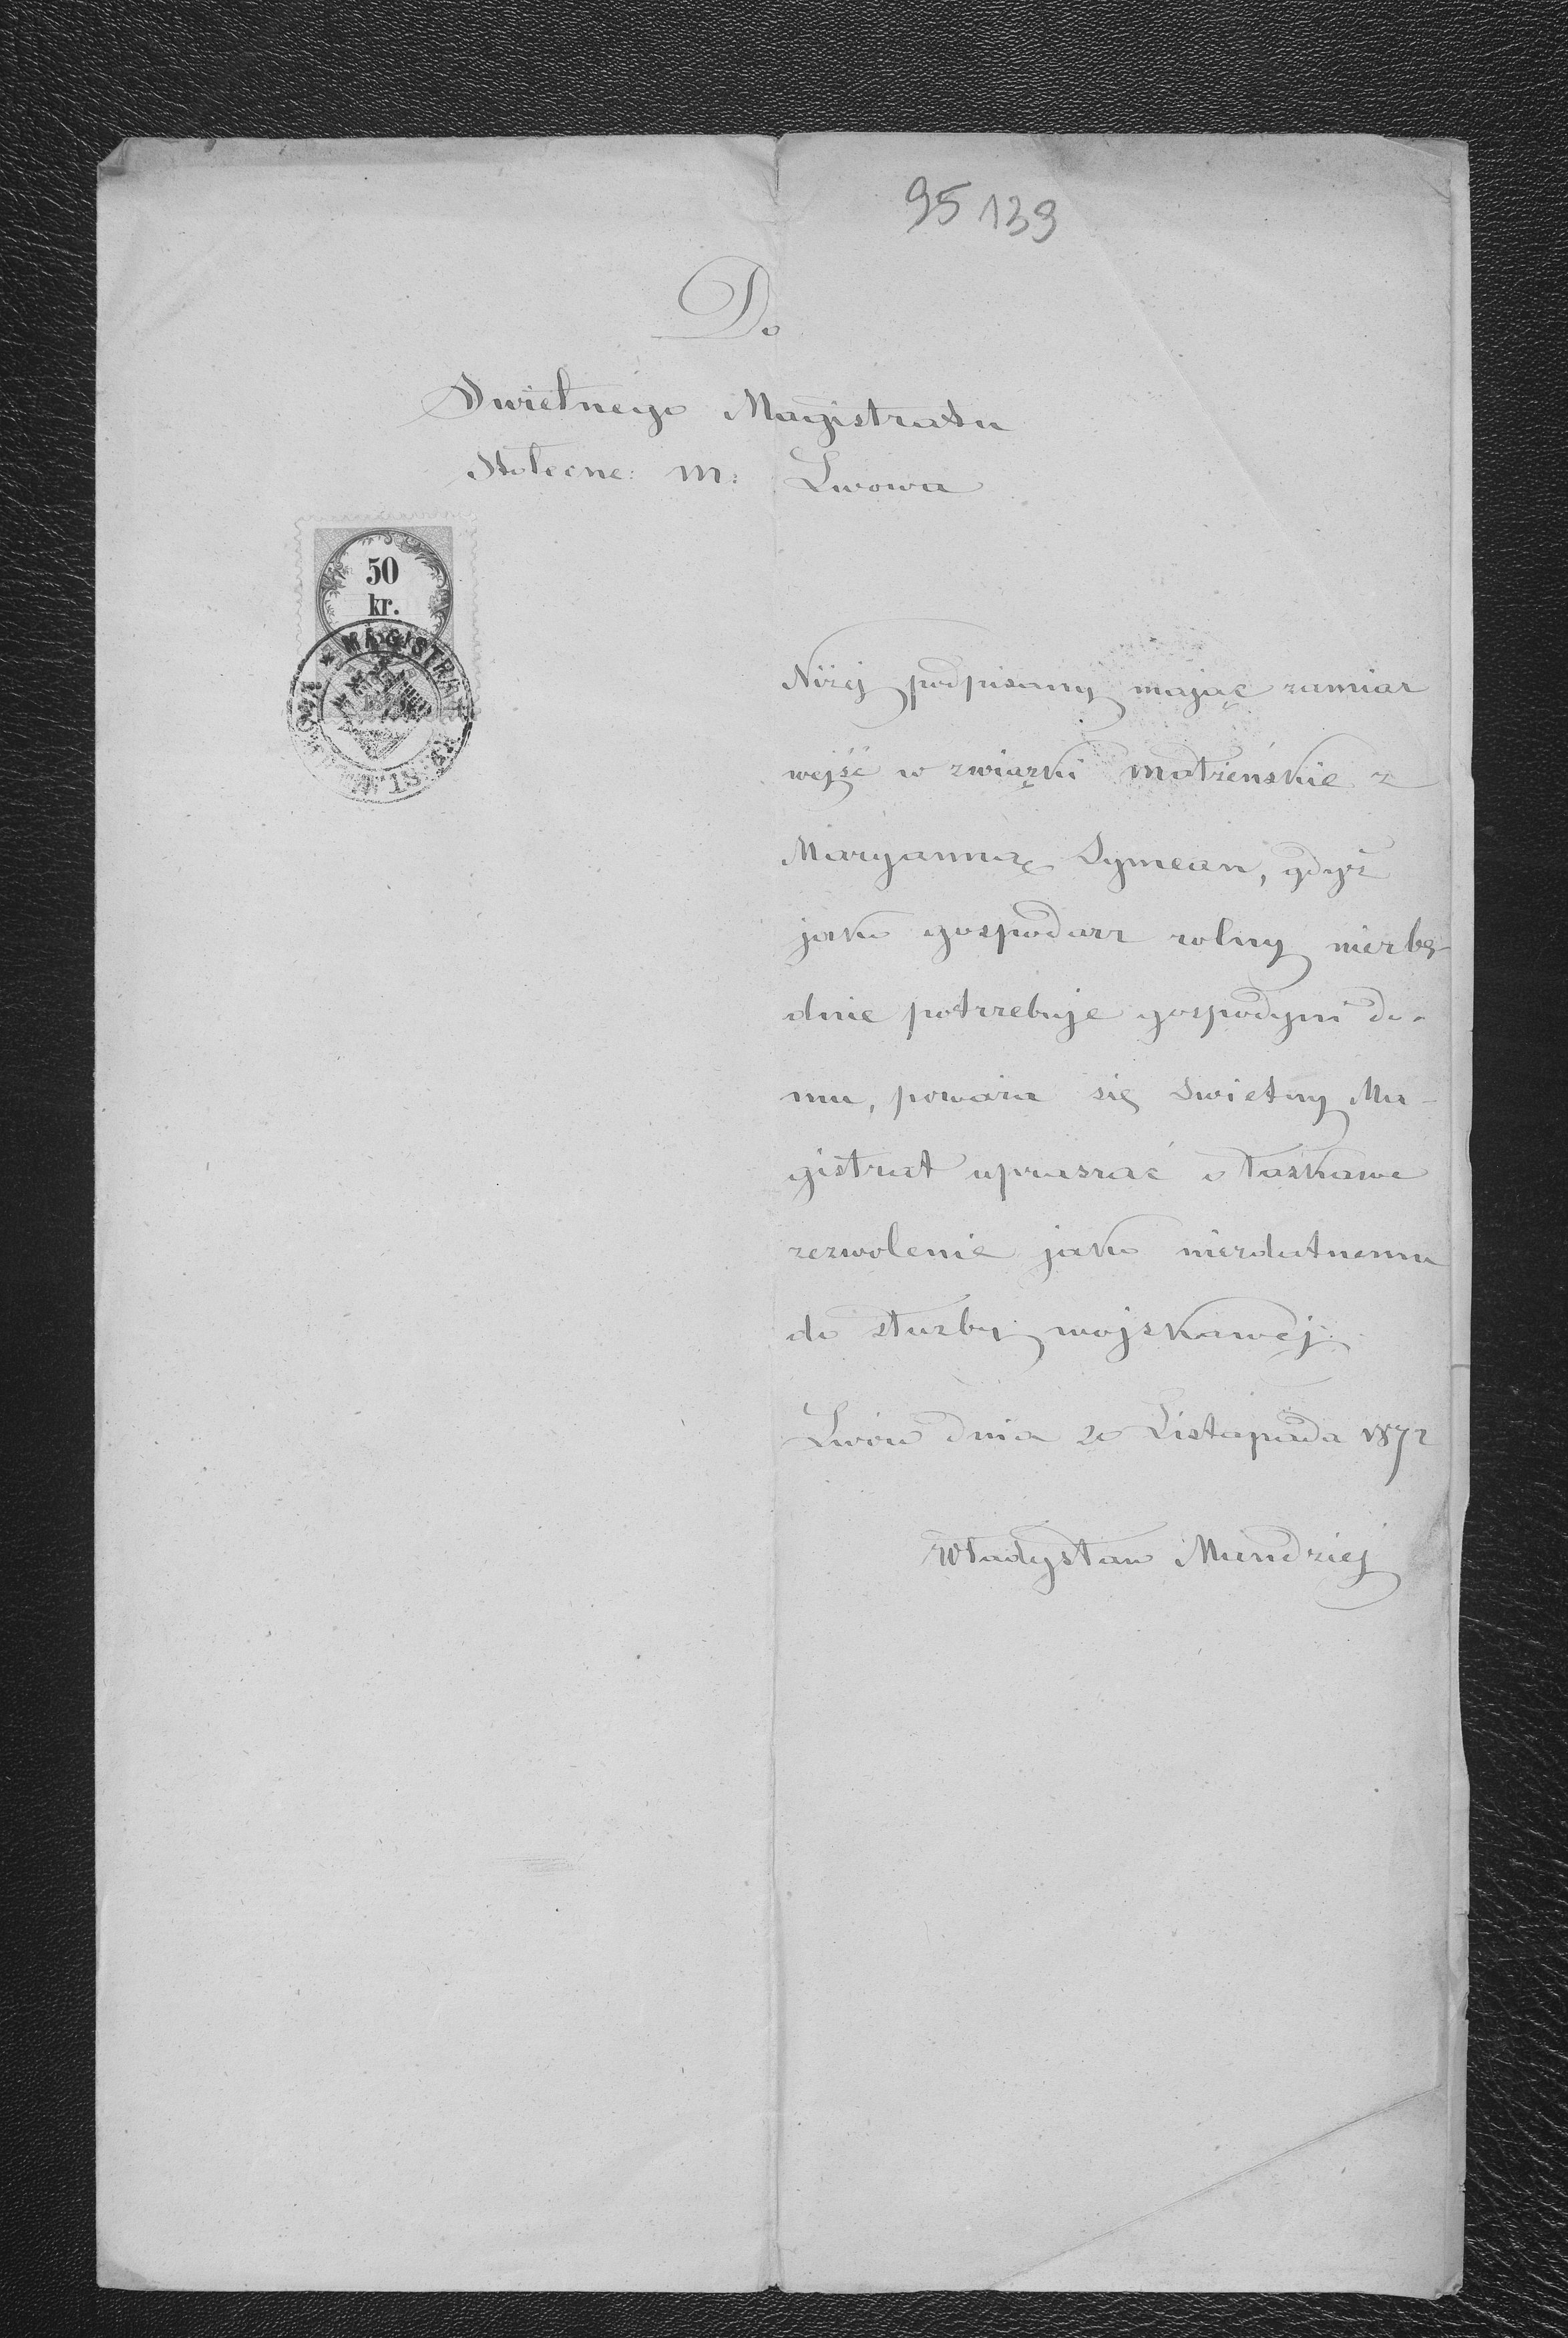 95139
Do
Swietnego Magistratu
Stołeczne: m: Lwowa
50
kr.
MAGISTRAT
Niżej podpisany mając zamiar
wejść w związki małżeńskie z
Maryanną Symean, gdyż
jako gospodarz rolny niezbę-
dnie potrzebuje gospodyni do-
mu, poważa się Swietny Ma-
gistrat upraszać o łaskawe
zezwolenie jako niezdatnemu
do służby wojskowej.
Lwów dnia 20 Listopada 1872
Władysław Mundziej